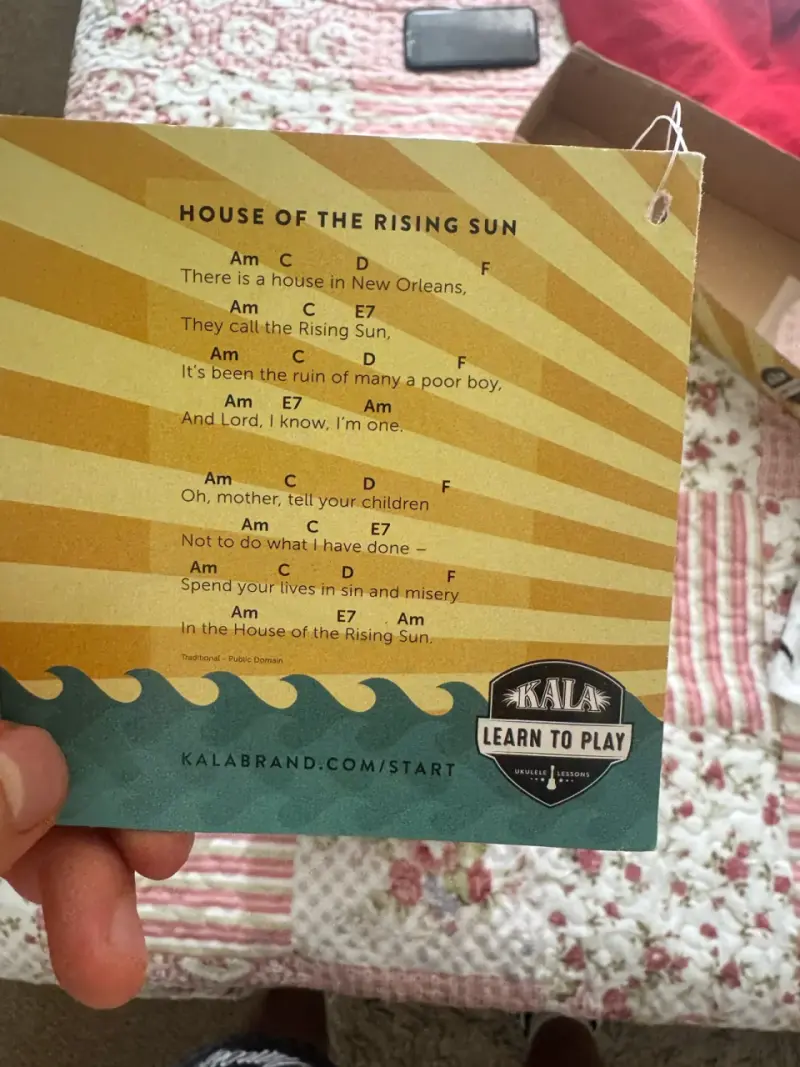 HOUSE OF THE RISING SUN
Am C D F
There is a house in New Orleans,
Am C E7
They call the Rising Sun,
Am C D F
It's been the ruin of many a poor boy,
Am E7 Am
And Lord, I know, I'm one.
Am C D F
Oh, mother, tell your children
Am C E7
Not to do what I have done –
Am C D F
Spend your lives in sin and misery
Am E7 Am
In the House of the Rising Sun.
Traditional - Public Domain
KALABRAND.COM/START
KALA
LEARN TO PLAY
UKULELE LESSONS